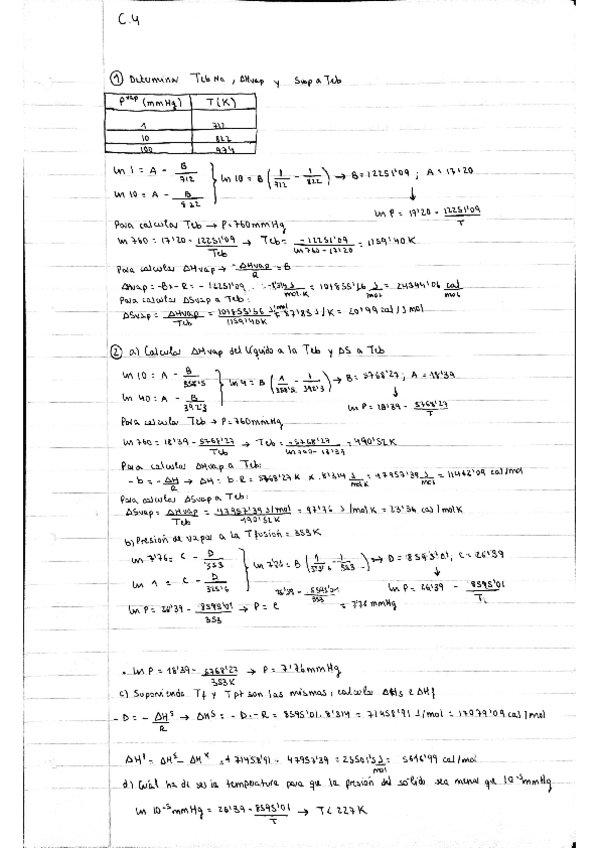 C.4
① Determinar Teb Na, ΔHvap y Svap a Teb
Pvap (mmHg) T(K)
1 712
10 822
100 974
ln 1 = A - B/712
ln 10 = A - B/822
ln 10 = B (1/712 - 1/822) → B = 12251'09 ; A = 17'20
↓
ln P = 17'20 - 12251'09/T
Para calcular Teb → P = 760 mmHg
ln 760 = 17'20 - 12251'09/Teb → Teb = -12251'09/ln 760 - 17'20 = 1159'40 K
Para calcular ΔHvap → -ΔHvap/R = B
ΔHvap = -B · -R = -12251'09 · -8'314 J/mol·K = 101855'56 J/mol = 24344'06 cal/mol
Para calcular ΔSvap a Teb:
ΔSvap = ΔHvap/Teb = 101855'56 J/mol/1159'40K = 87'85 J/K = 20'99 cal/J mol
② a) Calcular ΔHvap del líquido a la Teb y ΔS a Teb
ln 10 = A - B/358'5
ln 40 = A - B/392'3
ln 4 = B (1/358'5 - 1/392'3) → B = 5768'27 ; A = 18'39
↓
ln P = 18'39 - 5768'27/T
Para calcular Teb → P = 760mmHg
ln 760 = 18'39 - 5768'27/Teb → Teb = -5768'27/ln 760 - 18'39 = 490'52 K
Para calcular ΔHvap a Teb:
- b = -ΔH/R → ΔH = b·R = 5768'27 K × 8'314 J/mol K = 47957'39 J/mol = 11462'09 cal/mol
Para calcular ΔSvap a Teb:
ΔSvap = ΔHvap/Teb = 47957'39 J/mol/490'52K = 97'76 J/mol K = 23'36 cal/mol K
b) Presión de vapor a la Tfusión = 353 K
ln 7'76 = C - D/353
ln 1 = C - D/325'6
→ D = 8595'01 ; C = 26'39
↓
ln P = 26'39 - 8595'01/T
ln P = 26'39 - 8595'01/353 → P = e = 7'76 mmHg
• ln P = 18'39 - 5768'27/353K → P = 7'76 mmHg
c) Suponiendo Tf y Tpt son las mismas, calcular ΔHs e ΔHf
- D = - ΔHs/R → ΔHs = - D · -R = 8595'01 · 8'314 = 71458'91 J/mol = 17079'09 cal/mol
71458'91 - 47957'39 = 23501'5 J/mol = 5616'99 cal/mol
d) Cuál ha de ser la temperatura para que la presión del sólido sea menor que 10⁻⁵ mmHg
ln 10⁻⁵ mmHg = 26'39 - 8595'01/T → T < 227 K